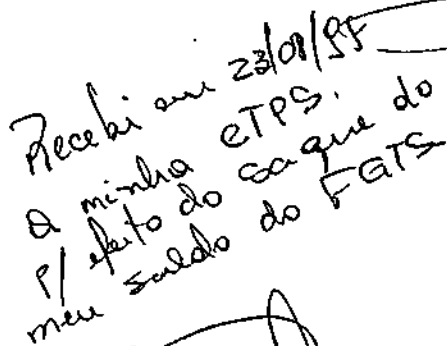 Recebi em 23/01/97
a minha CTPS.
p/ efeito do saque do
meu saldo do FGTS